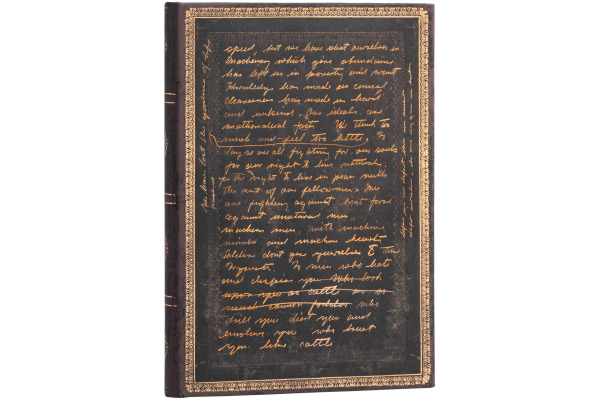 speed, but we have shut ourselves in
Machinery which gives abundance
has left us in poverty and want
Knowledge has made us cynical
cleverness has made us hard
and unkind. Our ideals are
mathematical facts. We think too
much and feel too little. To
day we are all fighting for our souls
for our right to live, naturally
for the right to live in peace with
the rest of our fellowmen. We
are fighting against brut force
against unnatural men.
machine men, with machine
minds and machine hearts
Soldiers dont give yourselves to the
Tyrants. To men who hate
and despise you who look
upon you as cattle as so
much cannon fodder who
drill you diet you and
enslave you who treat
you like cattle
have lost the of life